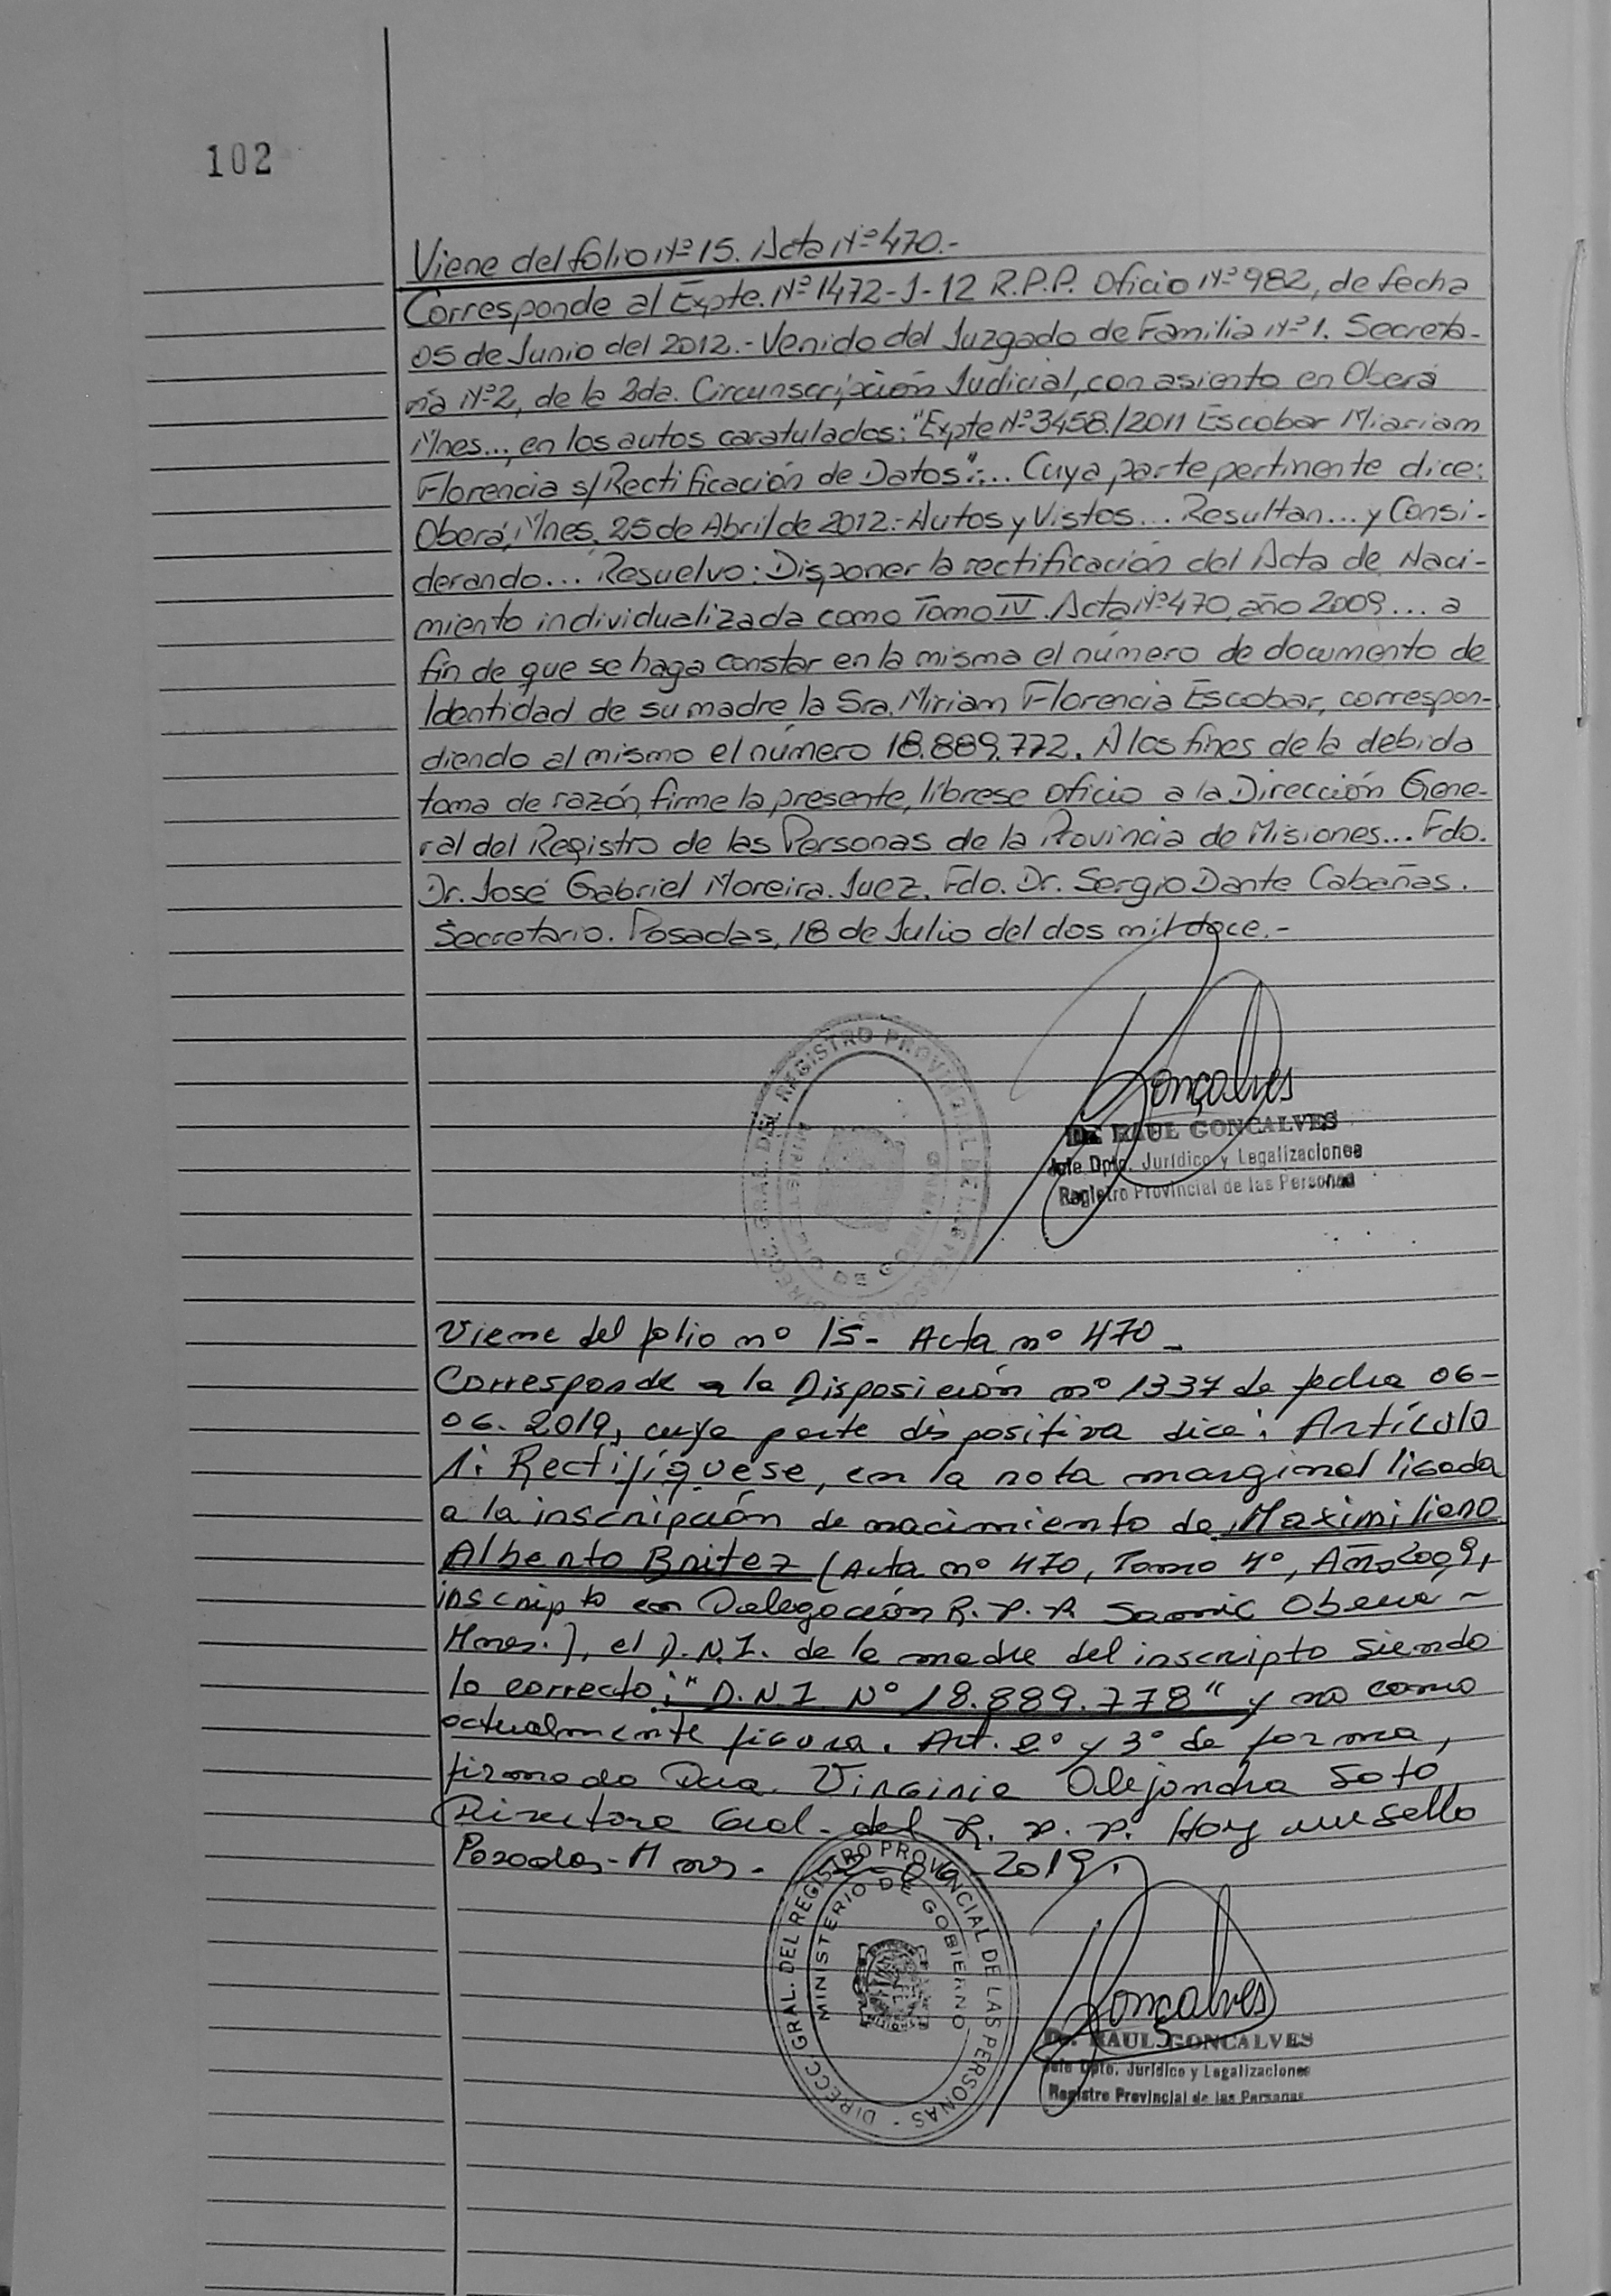 102
Viene del folio Nº 15. Acta Nº 470.-
Corresponde al Expte. Nº 1472-J-12 R.P.P. Oficio Nº 982, de fecha
05 de Junio del 2012.- Venido del Juzgado de Familia Nº 1. Secreta-
ría Nº 2, de la 2da. Circunscripción Judicial, con asiento en Oberá
Mnes..., en los autos caratulados: "Expte Nº 3458./2011 Escobar Miariam
Florencia s/Rectificación de Datos":... Cuya parte pertinente dice:
Oberá, Mnes, 25 de Abril de 2012.- Autos y Vistos... Resultan... y Consi-
derando... Resuelvo: Disponer la rectificación del Acta de Naci-
miento individualizada como Tomo IV. Acta Nº 470, año 2009... a
fin de que se haga constar en la misma el número de documento de
Identidad de su madre la Sra. Miriam Florencia Escobar, correspon-
diendo al mismo el número 18.889.772. A los fines de la debida
toma de razón, firme la presente, líbrese oficio a la Dirección Gene-
ral del Registro de las Personas de la Provincia de Misiones... Fdo.
Dr. José Gabriel Moreira. Juez. Fdo. Dr. Sergio Dante Cabañas.
Secretario. Posadas, 18 de Julio del dos mil doce.-
DIRECC. GRAL. DEL REGISTRO PROVINCIAL DE LAS PERSONAS
MINISTERIO DE GOBIERNO
Gonçalves
Dr. RAUL GONCALVES
Jefe Dpto. Jurídico y Legalizaciones
Registro Provincial de las Personas
Viene del folio nº 15- Acta nº 470-
Corresponde a la Disposición nº 1337 de fecha 06-
06-2019, cuya parte dispositiva dice: Artículo
1: Rectifíquese, en la nota marginal ligada
a la inscripción de nacimiento de Maximiliano
Alberto Britez (Acta nº 470, Tomo 4º, Año 2009,
inscripto en Delegación R.P.P. Samic Oberá-
Mnes.), el D.N.I. de la madre del inscripto siendo
lo correcto: "D.N.I Nº 18.889.778" y no como
actualmente figura. Art. 2º y 3º de forma,
firmado Dra. Virginia Alejandra Soto
Directora Gral. del R.P.P. Hoy
Posadas-Mnes. 2019.
DIRECC. GRAL. DEL REGISTRO PROVINCIAL DE LAS PERSONAS -
MINISTERIO DE GOBIERNO
Gonçalves
Dr. RAUL GONCALVES
Jefe Dpto. Jurídico y Legalizaciones
Registro Provincial de las Personas